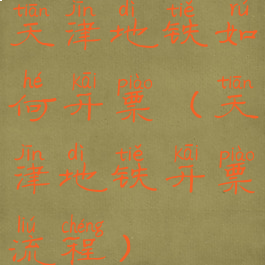 tiān jīn dì tiě rú
天津地铁如
hé kāi piào tiān
何开票(天
jīn dì tiě kāi piào
津地铁开票
liú chéng
流程)